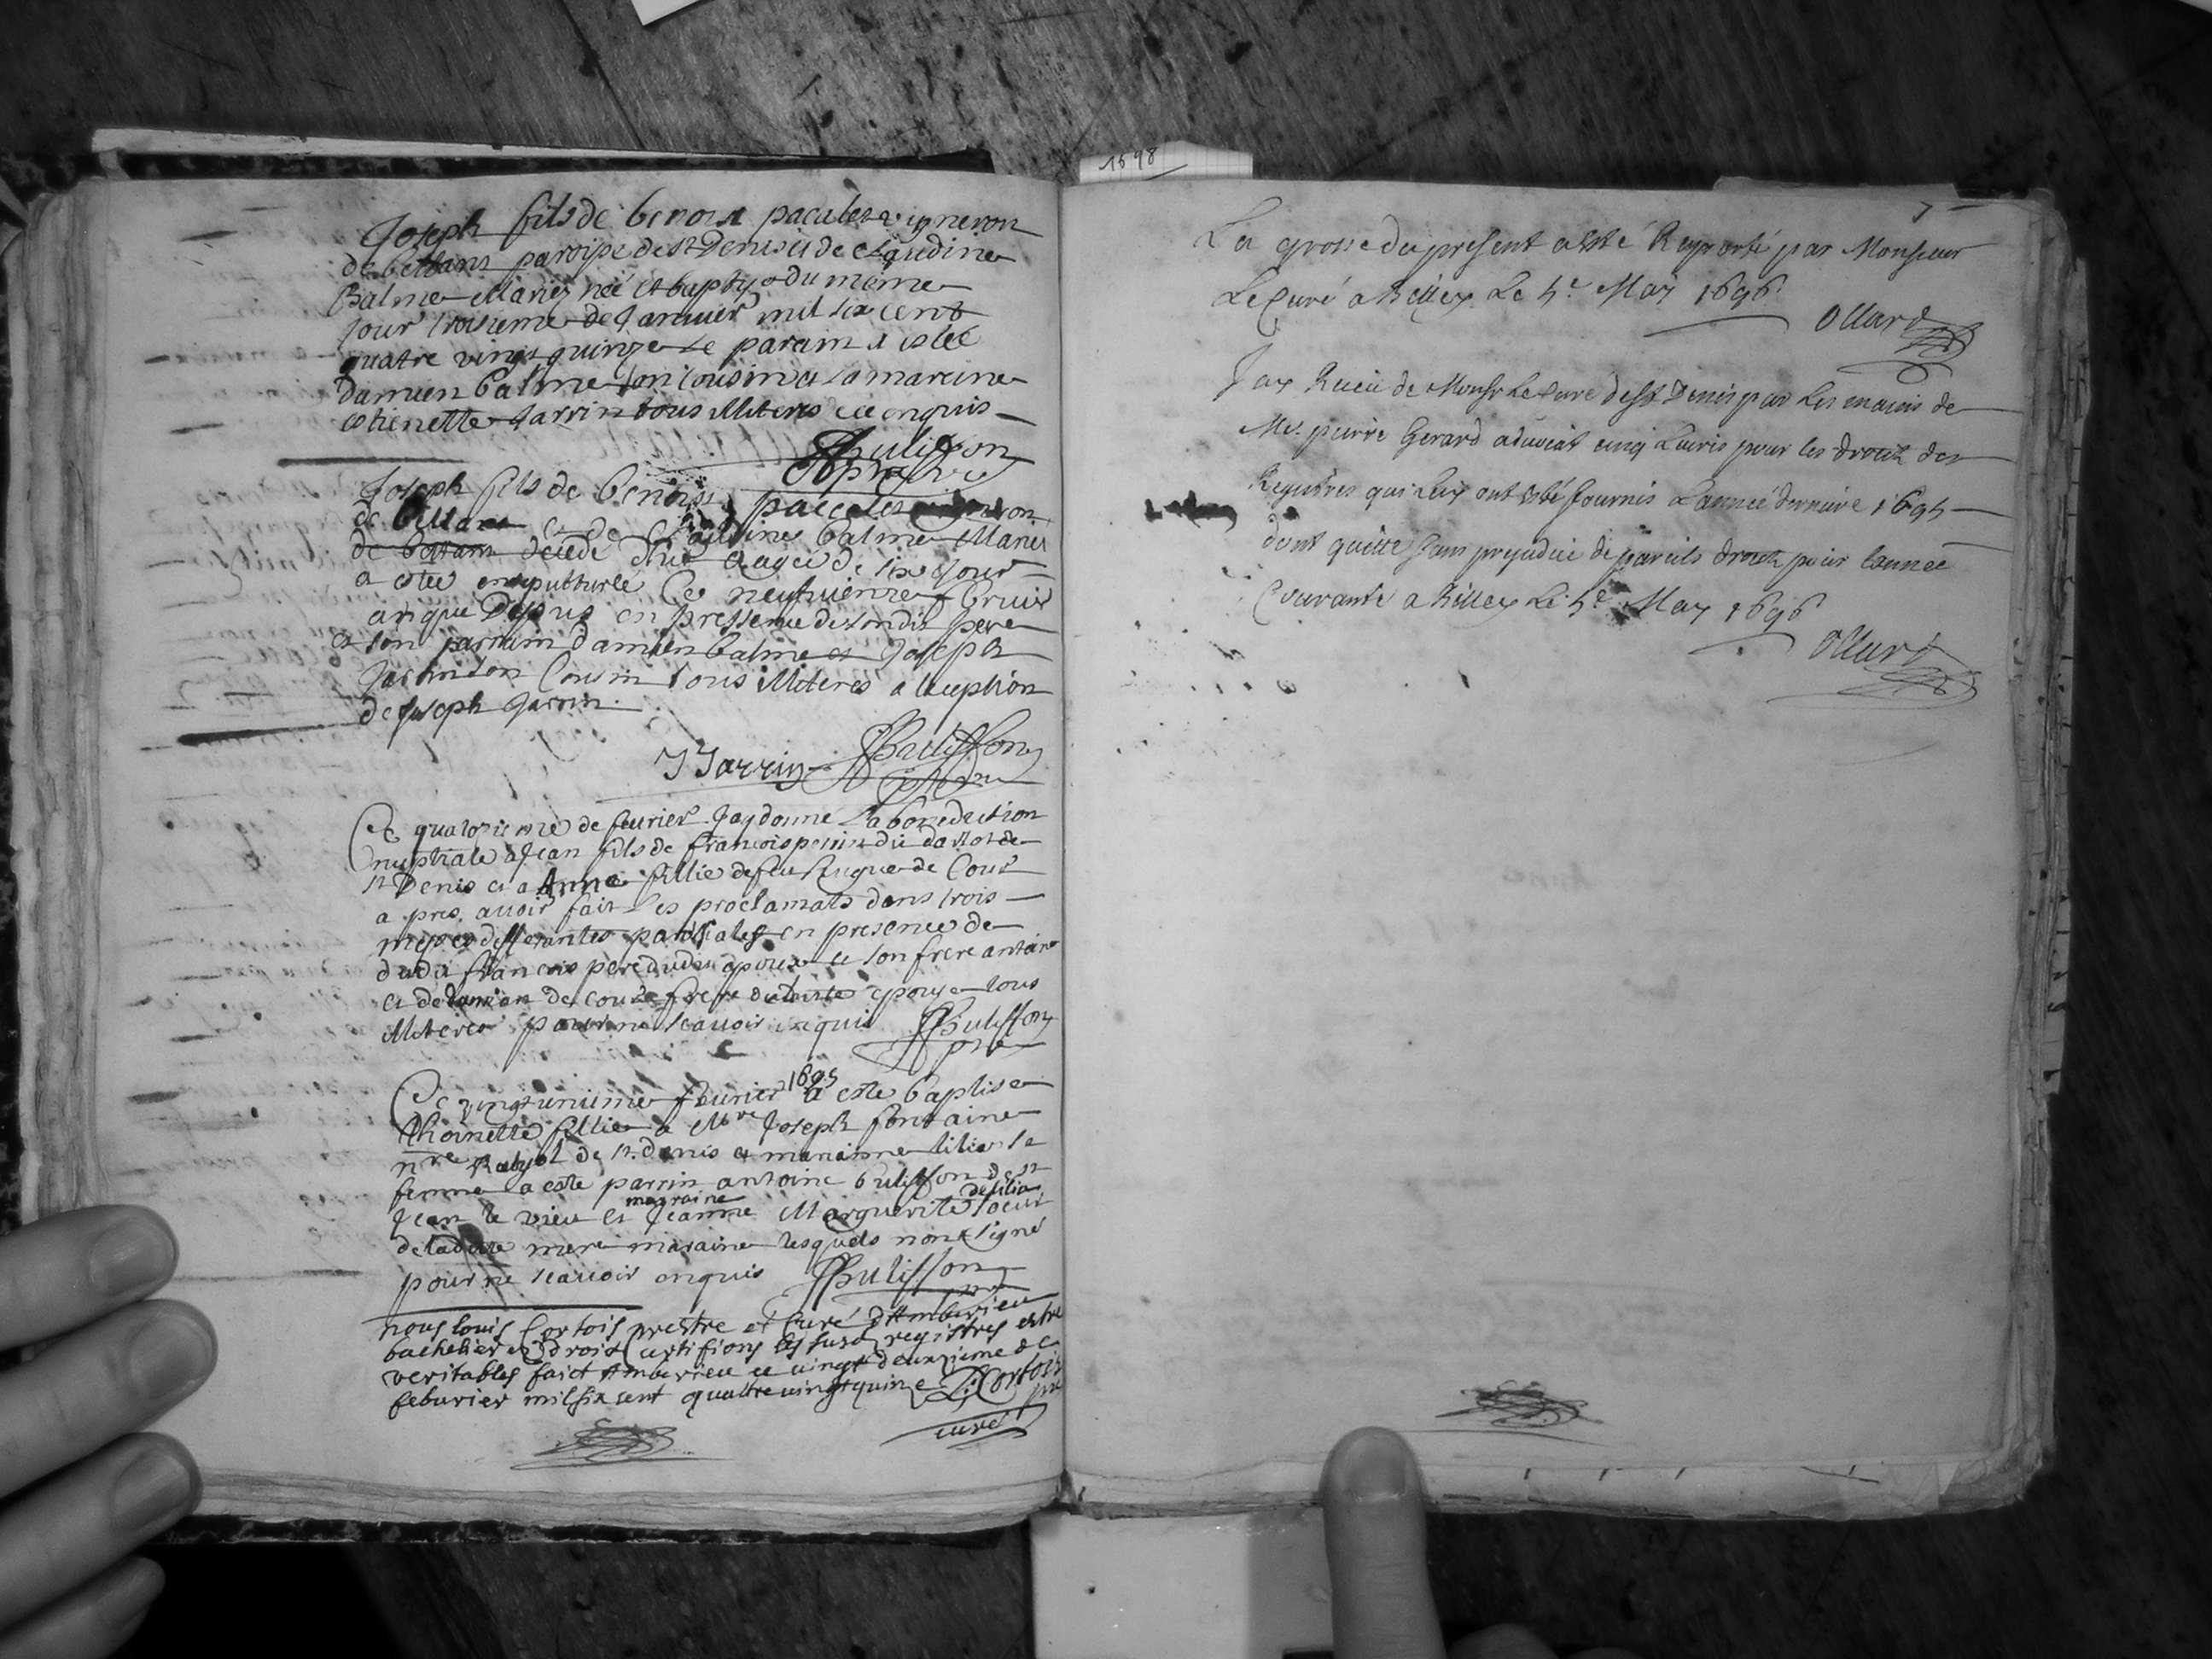 Joseph fils de benoist pacalet vigneron
de bettans paroipe de st Denis et de claudine
Balme Mariez neé et baptizé du méme
jour troisieme de Januier mil six cent
quatre vingt quinze Le parain a estéé
Damien balme son cousin et la maraine
etienette Jarrin tous illiteres ce enquis
Bulisson
ptre
Joseph fils de benoist pacalet vigneron
de bettans et de Claudine balme Mariez
de bettans decedé agée de six jour
a estee ensepulturée Ce neufuieme
que Dessus en pressence de sondit pere
et son parrain damien balme et Joseph
Jarrin son Cousin tous illiteres a lexeption
de Joseph Jarrin.
J Jarrin Bulisson
ptre
Ce quatorzieme de feurier Jay donné La benediction
nuptiale a Jean fils de francois perrin dit
st Denis et a Anne fillie de feu hugue de Cour
a pres auoir fait Les proclamats dans trois
messes differantes parroissiales en presence de
dudit francois pere dudit epoux et son frere antoine
et de damian de cour frere de ladite epouse tous
illiteres pour ne scauoir enquis Bulisson
ptre
Ce vingt unieme feurier 1695 a este baptise
thoinette fillie a Mre Joseph fontaine
nre Royal de st. denis et marianne lilia sa
femme a este parrin antoine bulisson de st
Jean le vieu et marraine Jeanne Marguerite de lilia soeur
de ladite mere maraine lesquels nont signé
pour ne scauoir enquis Bulisson
ptre
nous louis Cortois prestre et Curé d'Amberieu
bachelier en droit Certifions les susd registres estre
veritables faict Amberieu ce vingt deuxieme de
feburier mil six sent quattre uingt quinze L: Cortois
ptre
curé
1698
La grosse du present a esté Raporté par Monsieur
Le Curé a Belley Le 5e May 1696.
Ollard
Jay Receu de Monsr Le Curé de St Denis par les mains de
Me. pierre Gerard aduocat cinq Liures pour les droitz des
Registres qui luy ont esté fournis L'année derniere 1695
dont quitte sans prejudice de pareils droitz pour lannée
Courante a Belley Le 5e May 1696
Ollard